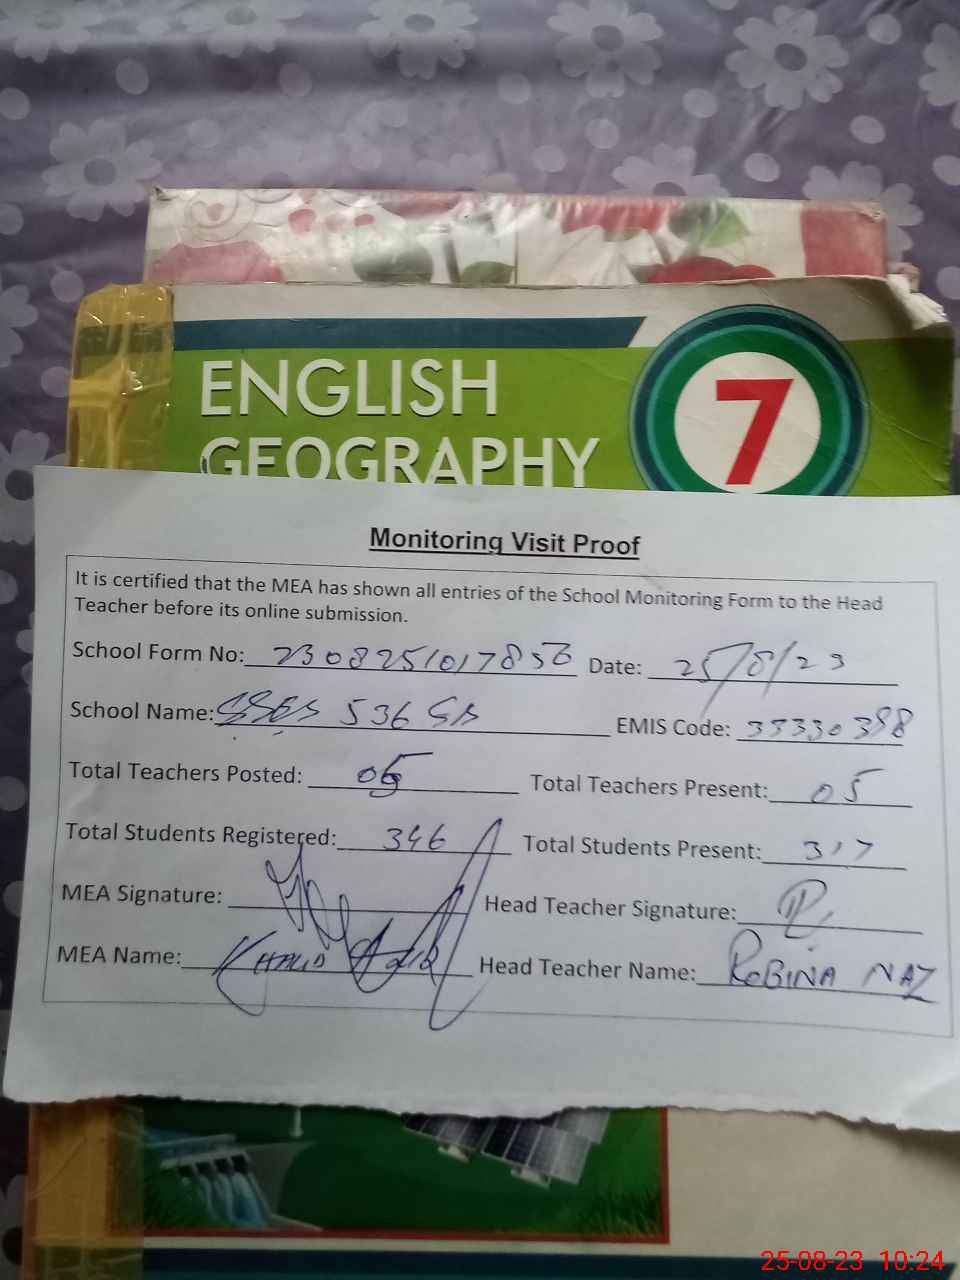 ENGLISH
GEOGRAPHY
7
Monitoring Visit Proof
It is certified that the MEA has shown all entries of the School Monitoring Form to the Head
Teacher before its online submission.
School Form No: 230825101785 Date: 25/8/23
School Name: 536 GB EMIS Code: 33330398
Total Teachers Posted: 05 Total Teachers Present: 05
Total Students Registered: 346 Total Students Present: 317
MEA Signature: Head Teacher Signature:
MEA Name: KHALID Head Teacher Name: ROBINA NAZ
25-08-23 10:24